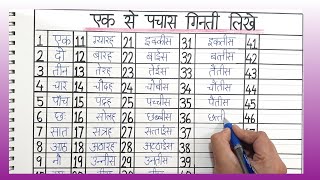 एक से पचास गिनती लिखे
1 एक 11 ग्यारह 21 इक्कीस 31 इकतीस 41
2 दो 12 बारह 22 बाईस 32 बत्तीस 42
3 तीन 13 तेरह 23 तेईस 33 तैंतीस 43
4 चार 14 चौदह 24 चौबीस 34 चौंतीस 44
5 पाँच 15 पंद्रह 25 पच्चीस 35 पैंतीस 45
6 छः 16 सोलह 26 छब्बीस 36 छत्ती 46
7 सात 17 सत्रह 27 सताईस 37
8 आठ 18 अठारह 28 अठाईस 38
9 नौ 19 उन्नीस 29 उनतीस 39